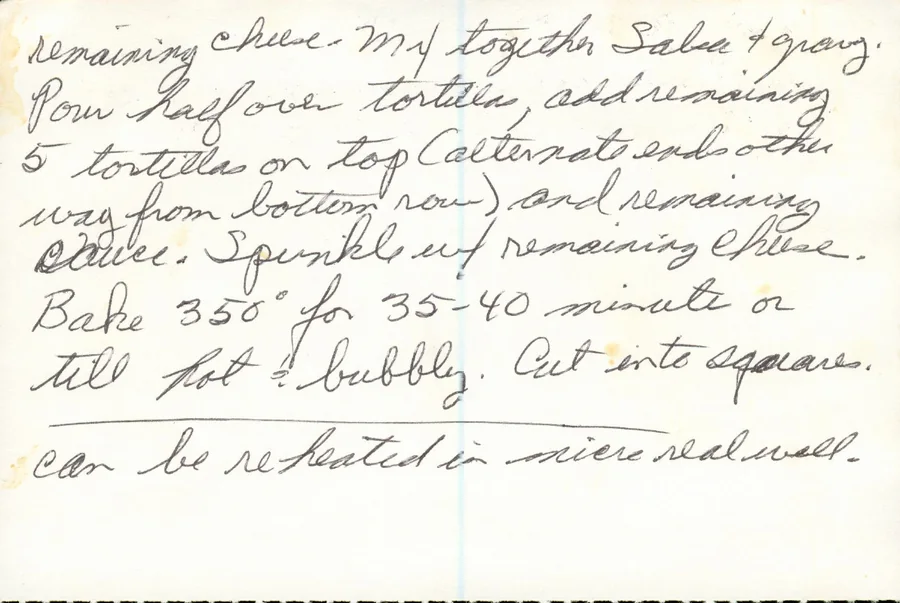 remaining cheese. Mix together Salsa + gravy.
Pour half over tortillas, add remaining
5 tortillas on top (alternate ends other
way from bottom row) and remaining
sauce. Sprinkle w/ remaining cheese.
Bake 350° for 35-40 minute or
till hot & bubbly. Cut into squares.
can be reheated in micro real well.